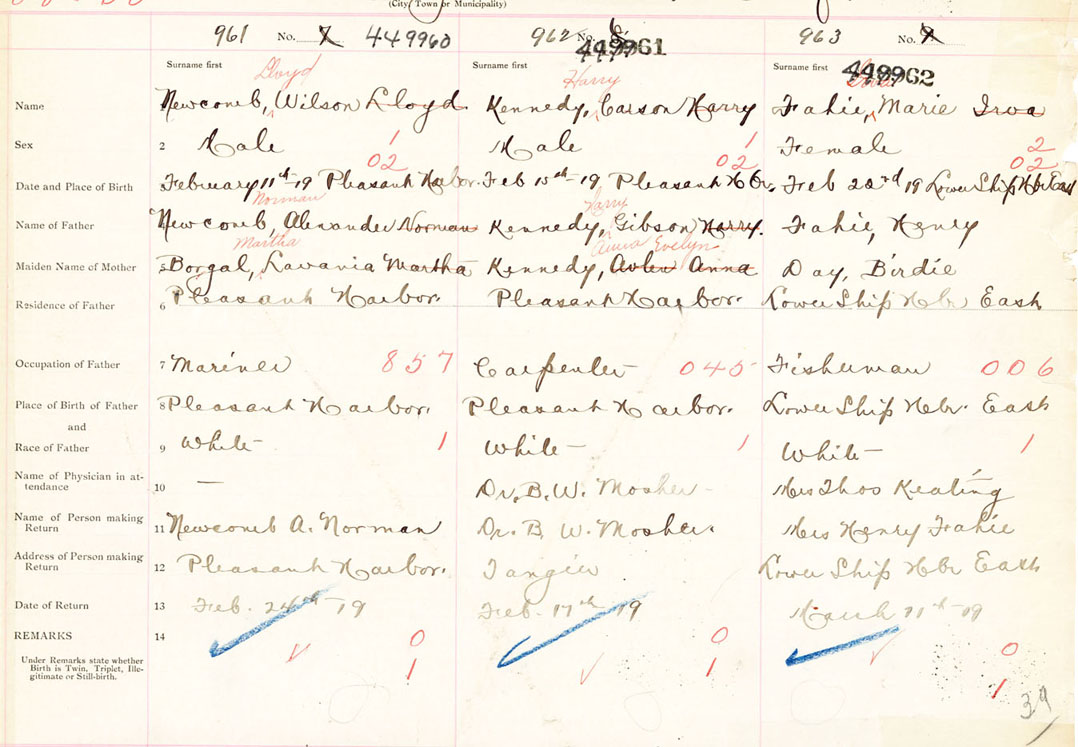 (City, Town or Municipality)
961 No. 7 449960 962 No. 8 449961 963 No. 9 449962
Surname first Surname first Surname first
Lloyd Harry
Name Newcomb, Wilson Lloyd Kennedy, Carson Harry Fahie, Marie
Sex 2 Male 1 Male 1 Female 2
02 02 02
Date and Place of Birth 3 February 11th-19 Pleasant Harbor. Feb 15th-19 Pleasant Hbr. Feb 22nd 19 Lower Ship Hbr East
Norman Harry
Name of Father Newcomb, Alexander Norman Kennedy, Gibson Harry. Fahie, Henry
Martha Anna Evelyn
Maiden Name of Mother 5 Borgal, Lavania Martha Kennedy, Anna Day, Birdie
Residence of Father 6 Pleasant Harbor. Pleasant Harbor. Lower Ship Hbr East
Occupation of Father 7 Mariner 857 Carpenter 045 Fisherman 006
Place of Birth of Father 8 Pleasant Harbor. Pleasant Harbor. Lower Ship Hbr. East
and
Race of Father 9 White 1 White 1 White 1
Name of Physician in at-
tendance 10 — Dr. B. W. Mosher Mrs Thos Keating
Name of Person making
Return 11 Newcomb A. Norman Dr. B. W. Mosher. Mrs Henry Fahie
Address of Person making
Return 12 Pleasant Harbor. Tangier Lower Ship Hbr East
Date of Return 13 Feb. 24th-19 Feb. 17th 19 March 11th-19
REMARKS 14 0 0 0
Under Remarks state whether
Birth is Twin, Triplet, Ille-
gitimate or Still-birth. 1 1 1